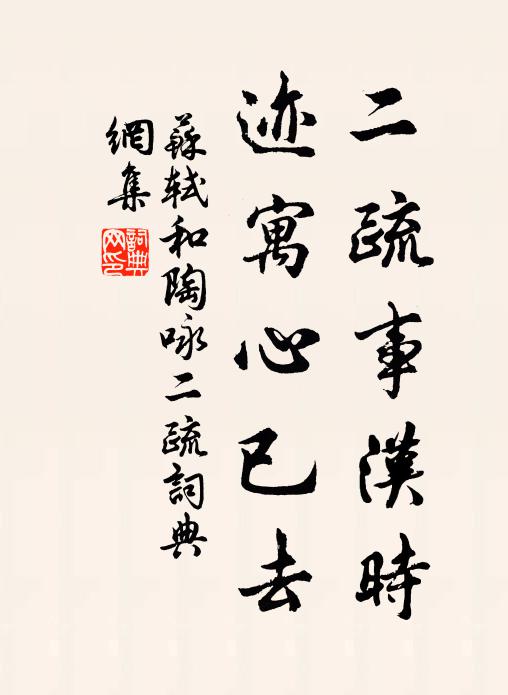 二疏事漢時
迹寓心已去
蘇軾和陶咏二疏詞典
網集
詞典
网印